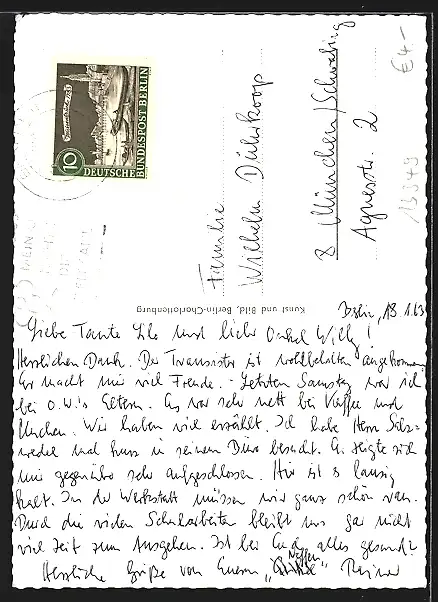 Familie
Wilhelm Dükerkoop
8 München/Schwabing
Agnesstr. 2
€4-
10
DEUTSCHE BUNDESPOST BERLIN
Kunst und Bild, Berlin-Charlottenburg
Berlin, 18.1.63
Liebe Tante Lilo und lieber Onkel Willy!
Herzlichen Dank. Der Transistor ist wohlbehalten angekommen.
Er macht mir viel Freude. - Letzten Samstag war ich
bei O.W.'s Eltern. Es war sehr nett bei Kaffee und
Kuchen. Wir haben viel erzählt. Ich habe Herrn Salz=
wedel mal kurz in seinem Büro besucht. Er zeigte sich
mir gegenüber sehr aufgeschlossen. Hier ist es lausig
kalt. In der Werkstatt müssen wir ganz schön ran.
Durch die vielen Schularbeiten bleibt uns gar nicht
viel Zeit zum Ausgehen. Ist bei Euch alles gesund?
Herzliche Grüße von Eurem „Neffen" Reiner